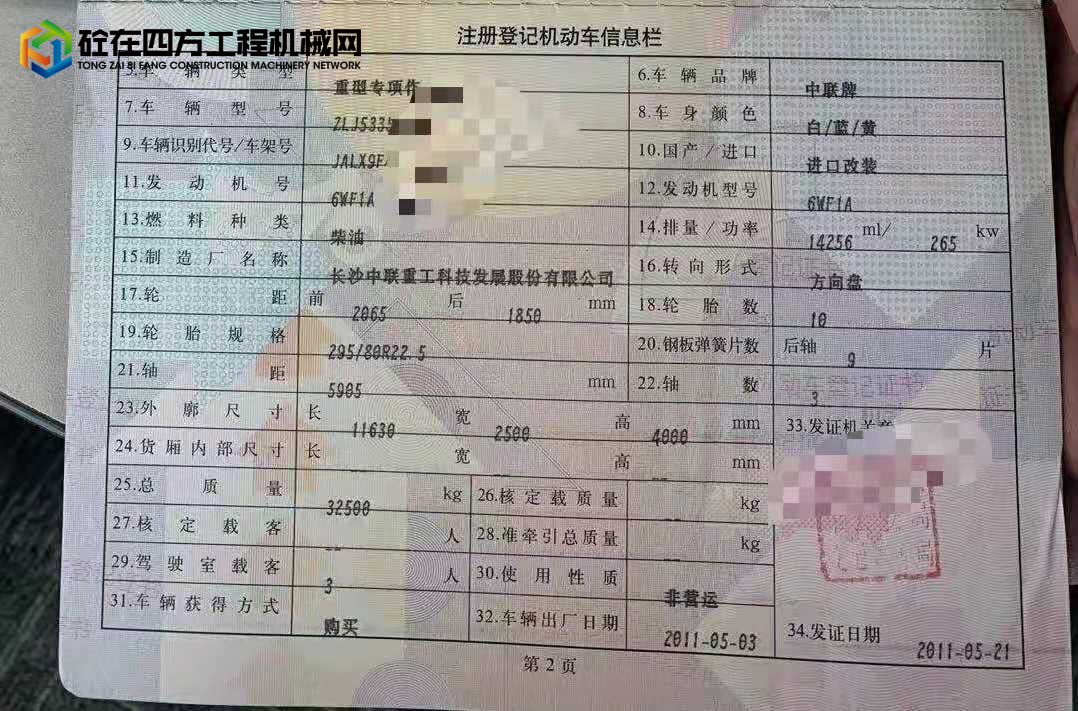 砼在四方工程机械网
TONG ZAI SI FANG CONSTRUCTION MACHINERY NETWORK
注册登记机动车信息栏
5.车辆类型 重型专项作 6.车辆品牌 中联牌
7.车辆型号 ZLJ5335 8.车身颜色 白/蓝/黄
9.车辆识别代号/车架号 JALX9F 10.国产/进口 进口改装
11.发动机号 6WF1A 12.发动机型号 6WF1A
13.燃料种类 柴油 14.排量/功率 14256 ml/ 265 kw
15.制造厂名称 长沙中联重工科技发展股份有限公司 16.转向形式 方向盘
17.轮距 前 2065 后 1850 mm 18.轮胎数 10
19.轮胎规格 295/80R22.5 20.钢板弹簧片数 后轴 9 片
21.轴距 5905 mm 22.轴数 3
23.外廓尺寸 长 11630 宽 2500 高 4000 mm 33.发证机关章
24.货厢内部尺寸 长 -- 宽 -- 高 -- mm
25.总质量 32500 kg 26.核定载质量 -- kg
27.核定载客 -- 人 28.准牵引总质量 -- kg
29.驾驶室载客 3 人 30.使用性质 非营运
31.车辆获得方式 购买 32.车辆出厂日期 2011-05-03 34.发证日期 2011-05-21
第2页